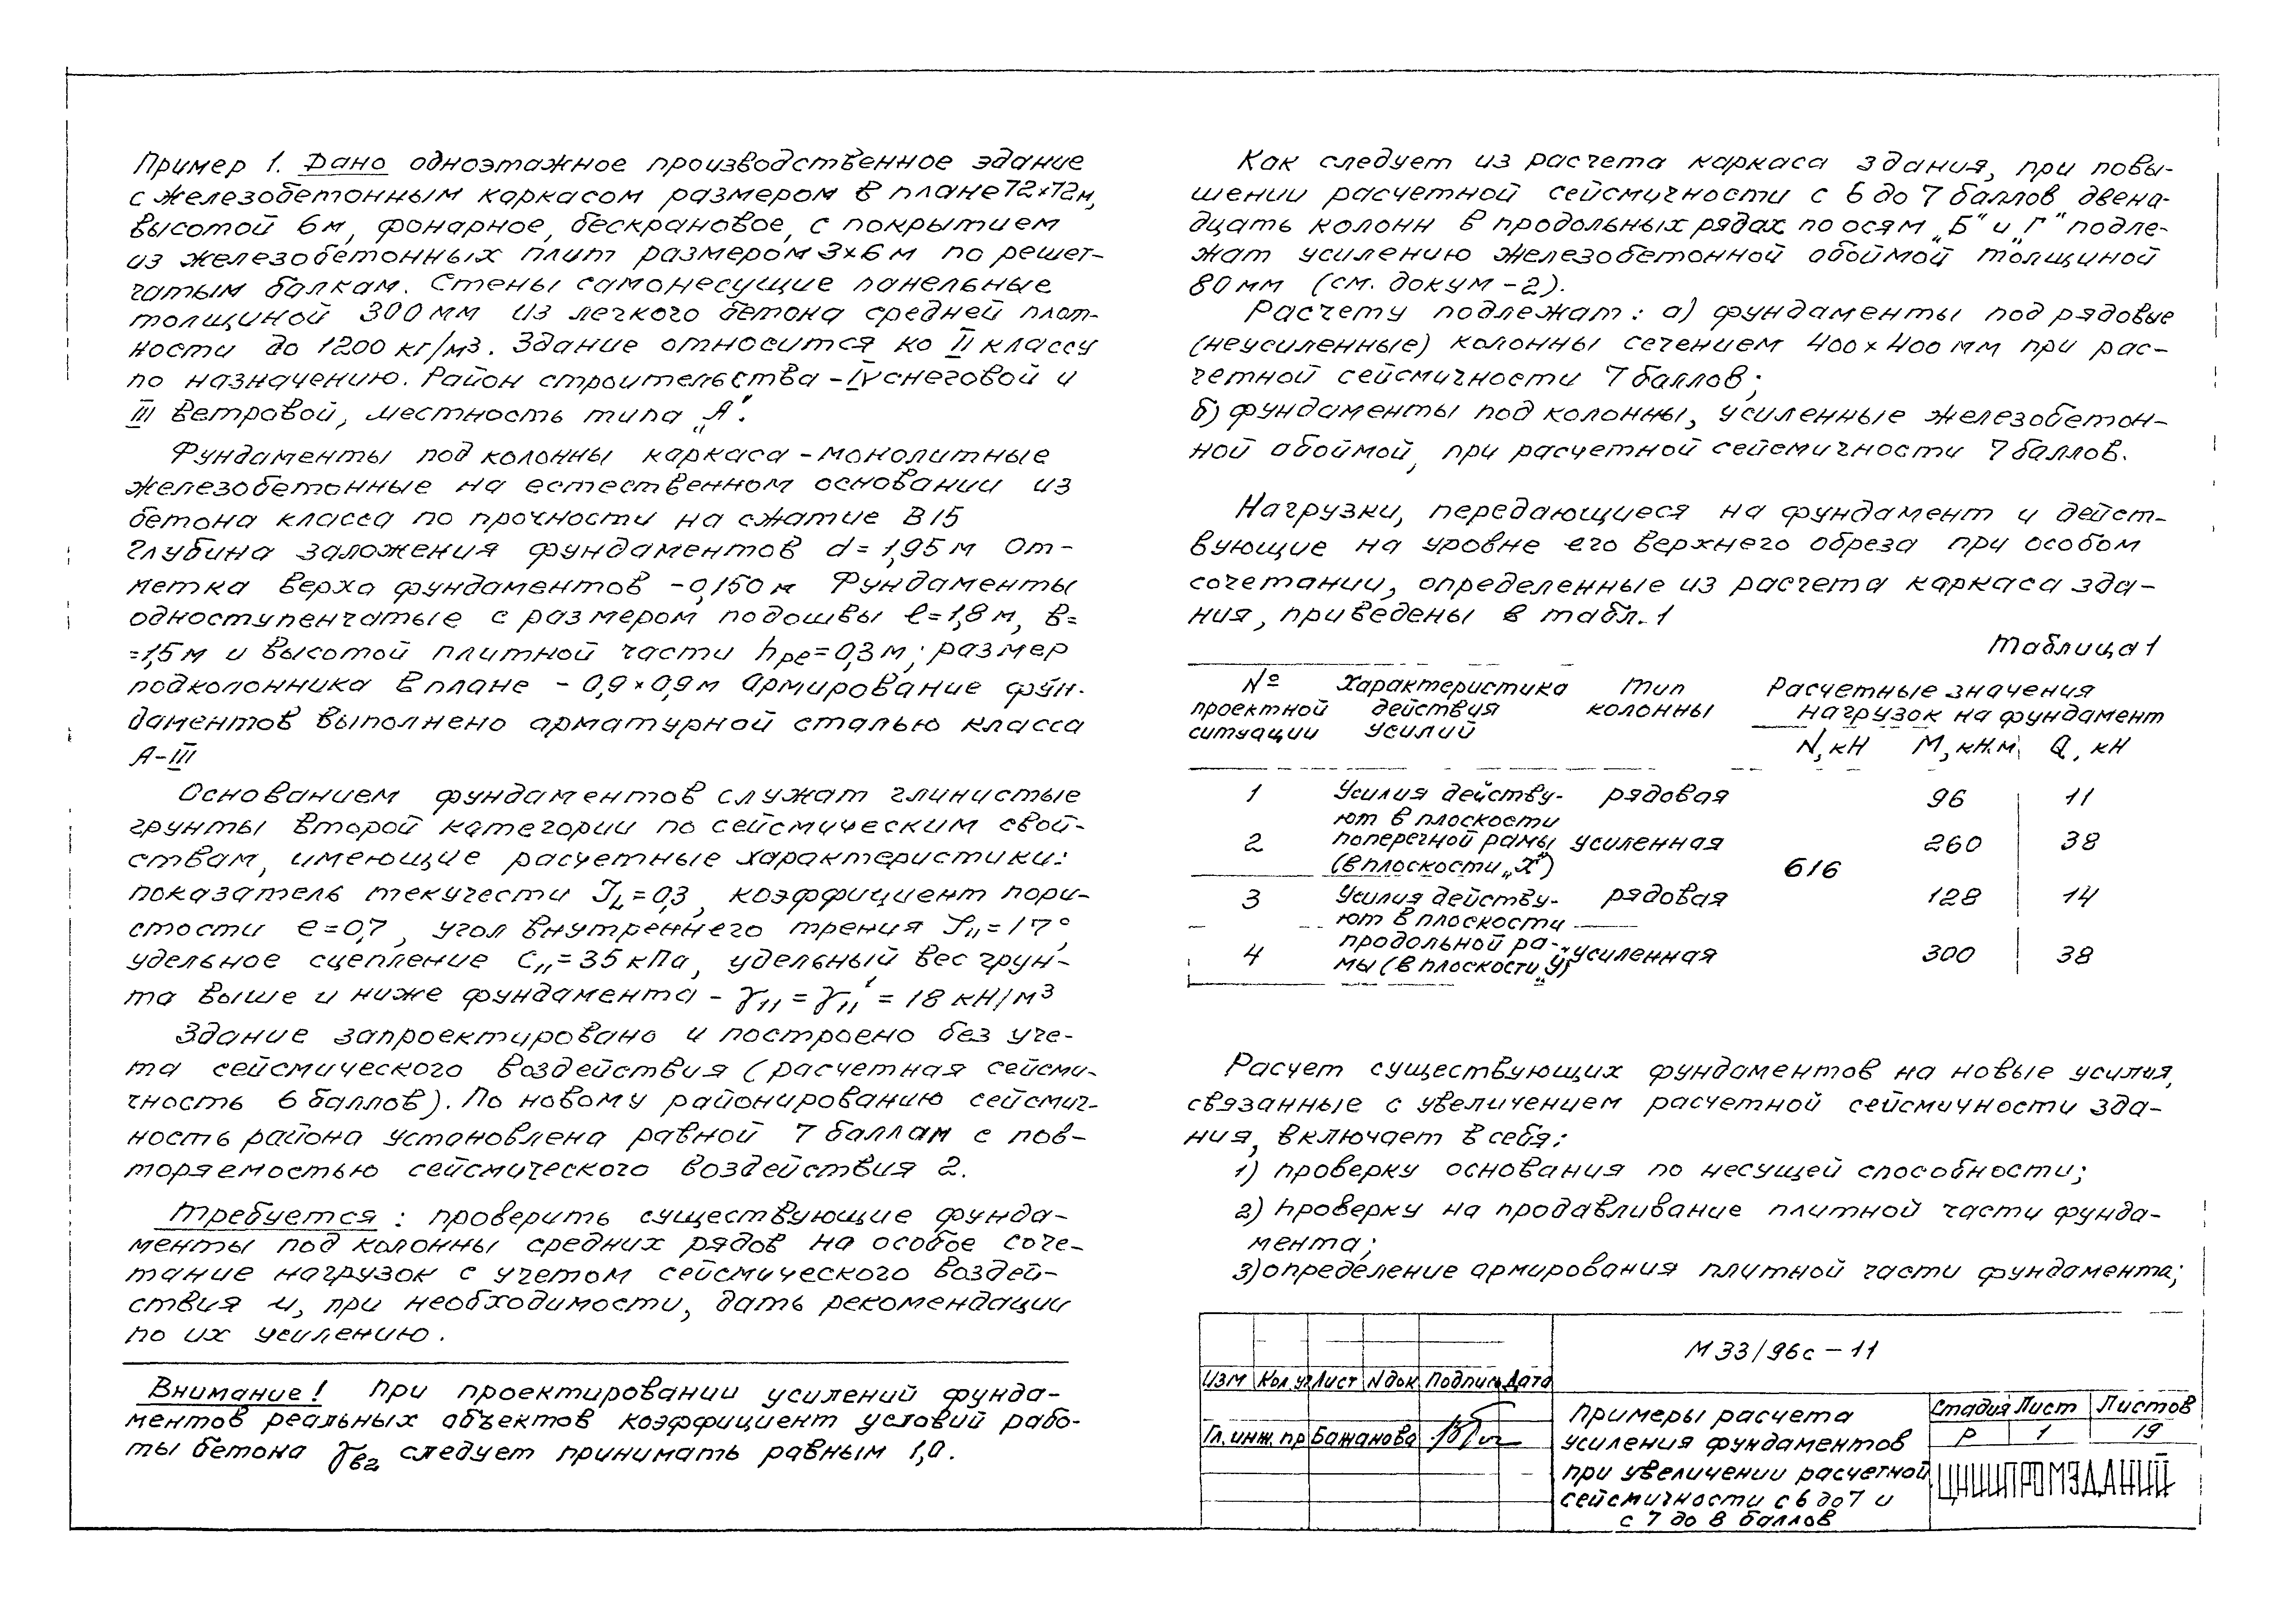 Пример 1. Дано одноэтажное производственное здание
с железобетонным каркасом размером в плане 72×72м,
высотой 6м, фонарное, бескрановое, с покрытием
из железобетонных плит размером 3×6 м по решет-
чатым балкам. Стены самонесущие панельные
толщиной 300 мм из легкого бетона средней плот-
ности до 1200 кг/м³. Здание относится ко II классу
по назначению. Район строительства – IV снеговой и
III ветровой, местность типа „А".
Фундаменты под колонны каркаса – монолитные
железобетонные на естественном основании из
бетона класса по прочности на сжатие В15
Глубина заложения фундаментов d = 1,95 м От-
метка верха фундаментов -0,150 м Фундаменты
одноступенчатые с размером подошвы ℓ=1,8 м, в=
=1,5 м и высотой плитной части hре=0,3 м; размер
подколонника в плане – 0,9×0,9 м Армирование фун-
даментов выполнено арматурной сталью класса
А-III
Основанием фундаментов служат глинистые
грунты второй категории по сейсмическим свой-
ствам, имеющие расчетные характеристики:
показатель текучести JL=0,3, коэффициент пори-
стости e=0,7, угол внутреннего трения φII=17°,
удельное сцепление CII=35 кПа, удельный вес грун-
та выше и ниже фундамента – γII = γII' = 18 кН/м³
Здание запроектировано и построено без уче-
та сейсмического воздействия (расчетная сейсми-
чность 6 баллов). По новому районированию сейсмич-
ность района установлена равной 7 баллам с пов-
торяемостью сейсмического воздействия 2.
Требуется: проверить существующие фунда-
менты под колонны средних рядов на особое соче-
тание нагрузок с учетом сейсмического воздей-
ствия и, при необходимости, дать рекомендации
по их усилению.
Внимание! При проектировании усилений фунда-
ментов реальных объектов коэффициент условий рабо-
ты бетона γв2 следует принимать равным 1,0.
Как следует из расчета каркаса здания, при повы-
шении расчетной сейсмичности с 6 до 7 баллов двена-
дцать колонн в продольных рядах по осям „Б" и „Г" подле-
жат усилению железобетонной обоймой толщиной
80 мм (см. докум –2).
Расчету подлежат: а) фундаменты под рядовые
(неусиленные) колонны сечением 400×400 мм при рас-
четной сейсмичности 7 баллов;
б) фундаменты под колонны, усиленные железобетон-
ной обоймой, при расчетной сейсмичности 7 баллов.
Нагрузки, передающиеся на фундамент и дейст-
вующие на уровне его верхнего обреза при особом
сочетании, определенные из расчета каркаса зда-
ния, приведены в табл. 1
Таблица 1
№ Характеристика Тип Расчетные значения
проектной действия колонны нагрузок на фундамент
ситуации усилий
N, кН М, кН.м Q, кН
1 Усилия действу- рядовая 96 11
ют в плоскости
2 поперечной рамы усиленная 260 38
(в плоскости „Х") 616
3 Усилия действу- рядовая 128 14
ют в плоскости
продольной ра-
4 мы (в плоскости „У") усиленная 300 38
Расчет существующих фундаментов на новые усилия,
связанные с увеличением расчетной сейсмичности зда-
ния, включает в себя:
1) проверку основания по несущей способности;
2) проверку на продавливание плитной части фунда-
мента;
3) определение армирования плитной части фундамента;
М 33/96с – 11
Изм Кол.уч Лист Nдок Подпись Дата
Гл. инж. пр Бажанова
Примеры расчета
усиления фундаментов
при увеличении расчетной
сейсмичности с 6 до 7 и
с 7 до 8 баллов
Стадия Лист Листов
Р 1 19
ЦНИИПРОМЗДАНИЙ